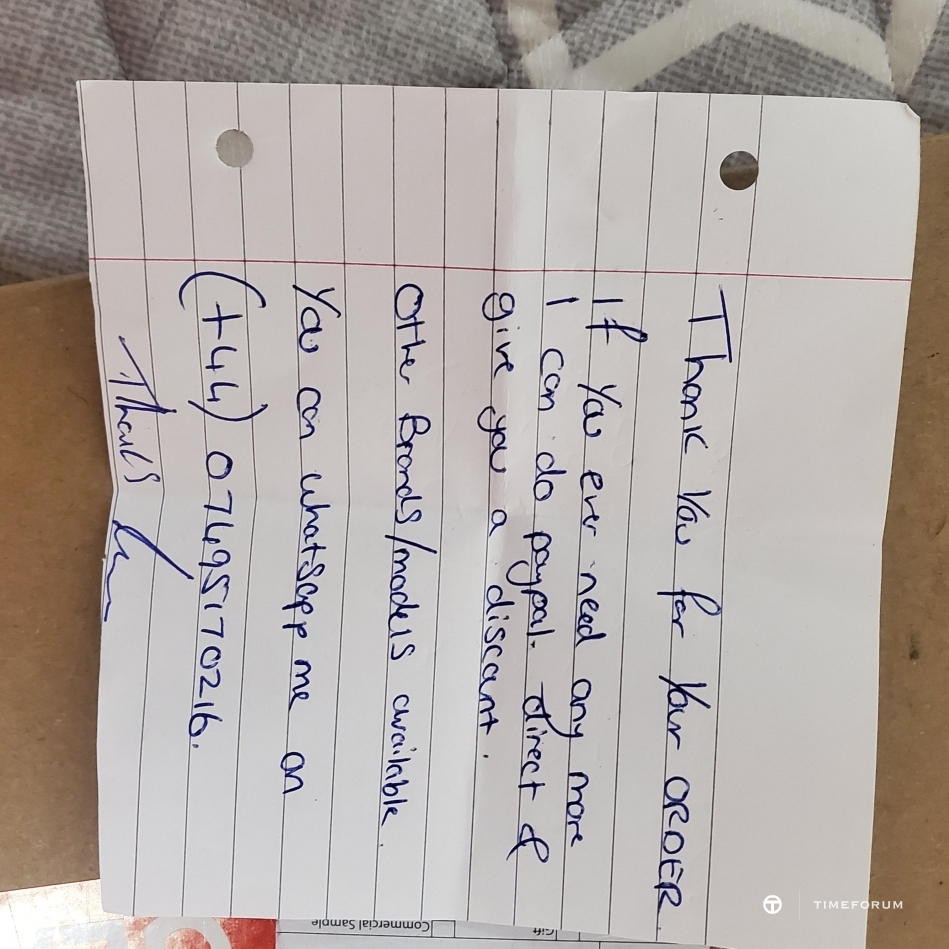 Thank You for Your ORDER.
If You ever need any more
I can do paypal. direct &
give you a discant.
Other Brands/models available.
You can whatsapp me on
(+44) 07495170216.
Thanks
Commercial Sample
Gift
TIMEFORUM